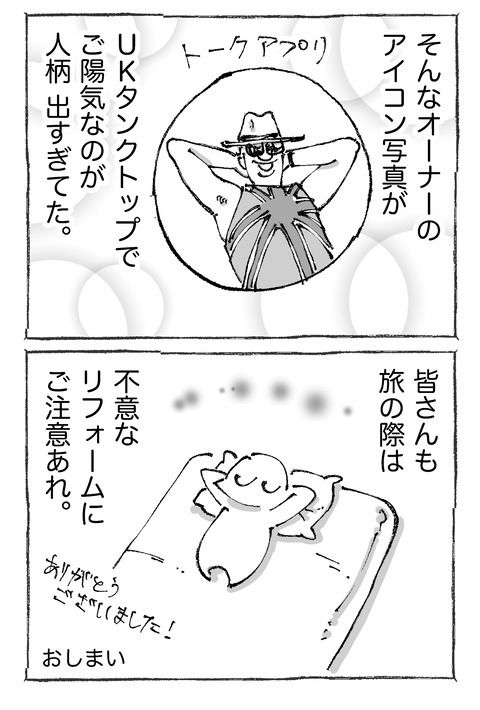 そんなオーナーの
アイコン写真が
トークアプリ
UKタンクトップで
ご陽気なのが
人柄 出すぎてた。
皆さんも
旅の際は
不意な
リフォームに
ご注意あれ。
ありがとう
ございました!
おしまい